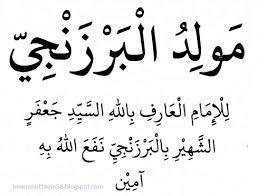 مَولِدُ الْبَرْزَنْجِيّ
لِلْإِمَامِ الْعَارِفِ بِاللهِ السَّيِّدِ جَعْفَرٍ
الشَّهِيْرِ بِالْبَرْزَنْجِيّ نَفَعَ اللهُ بِهِ
آمِيْن
imammuttaqin58.blogspot.com